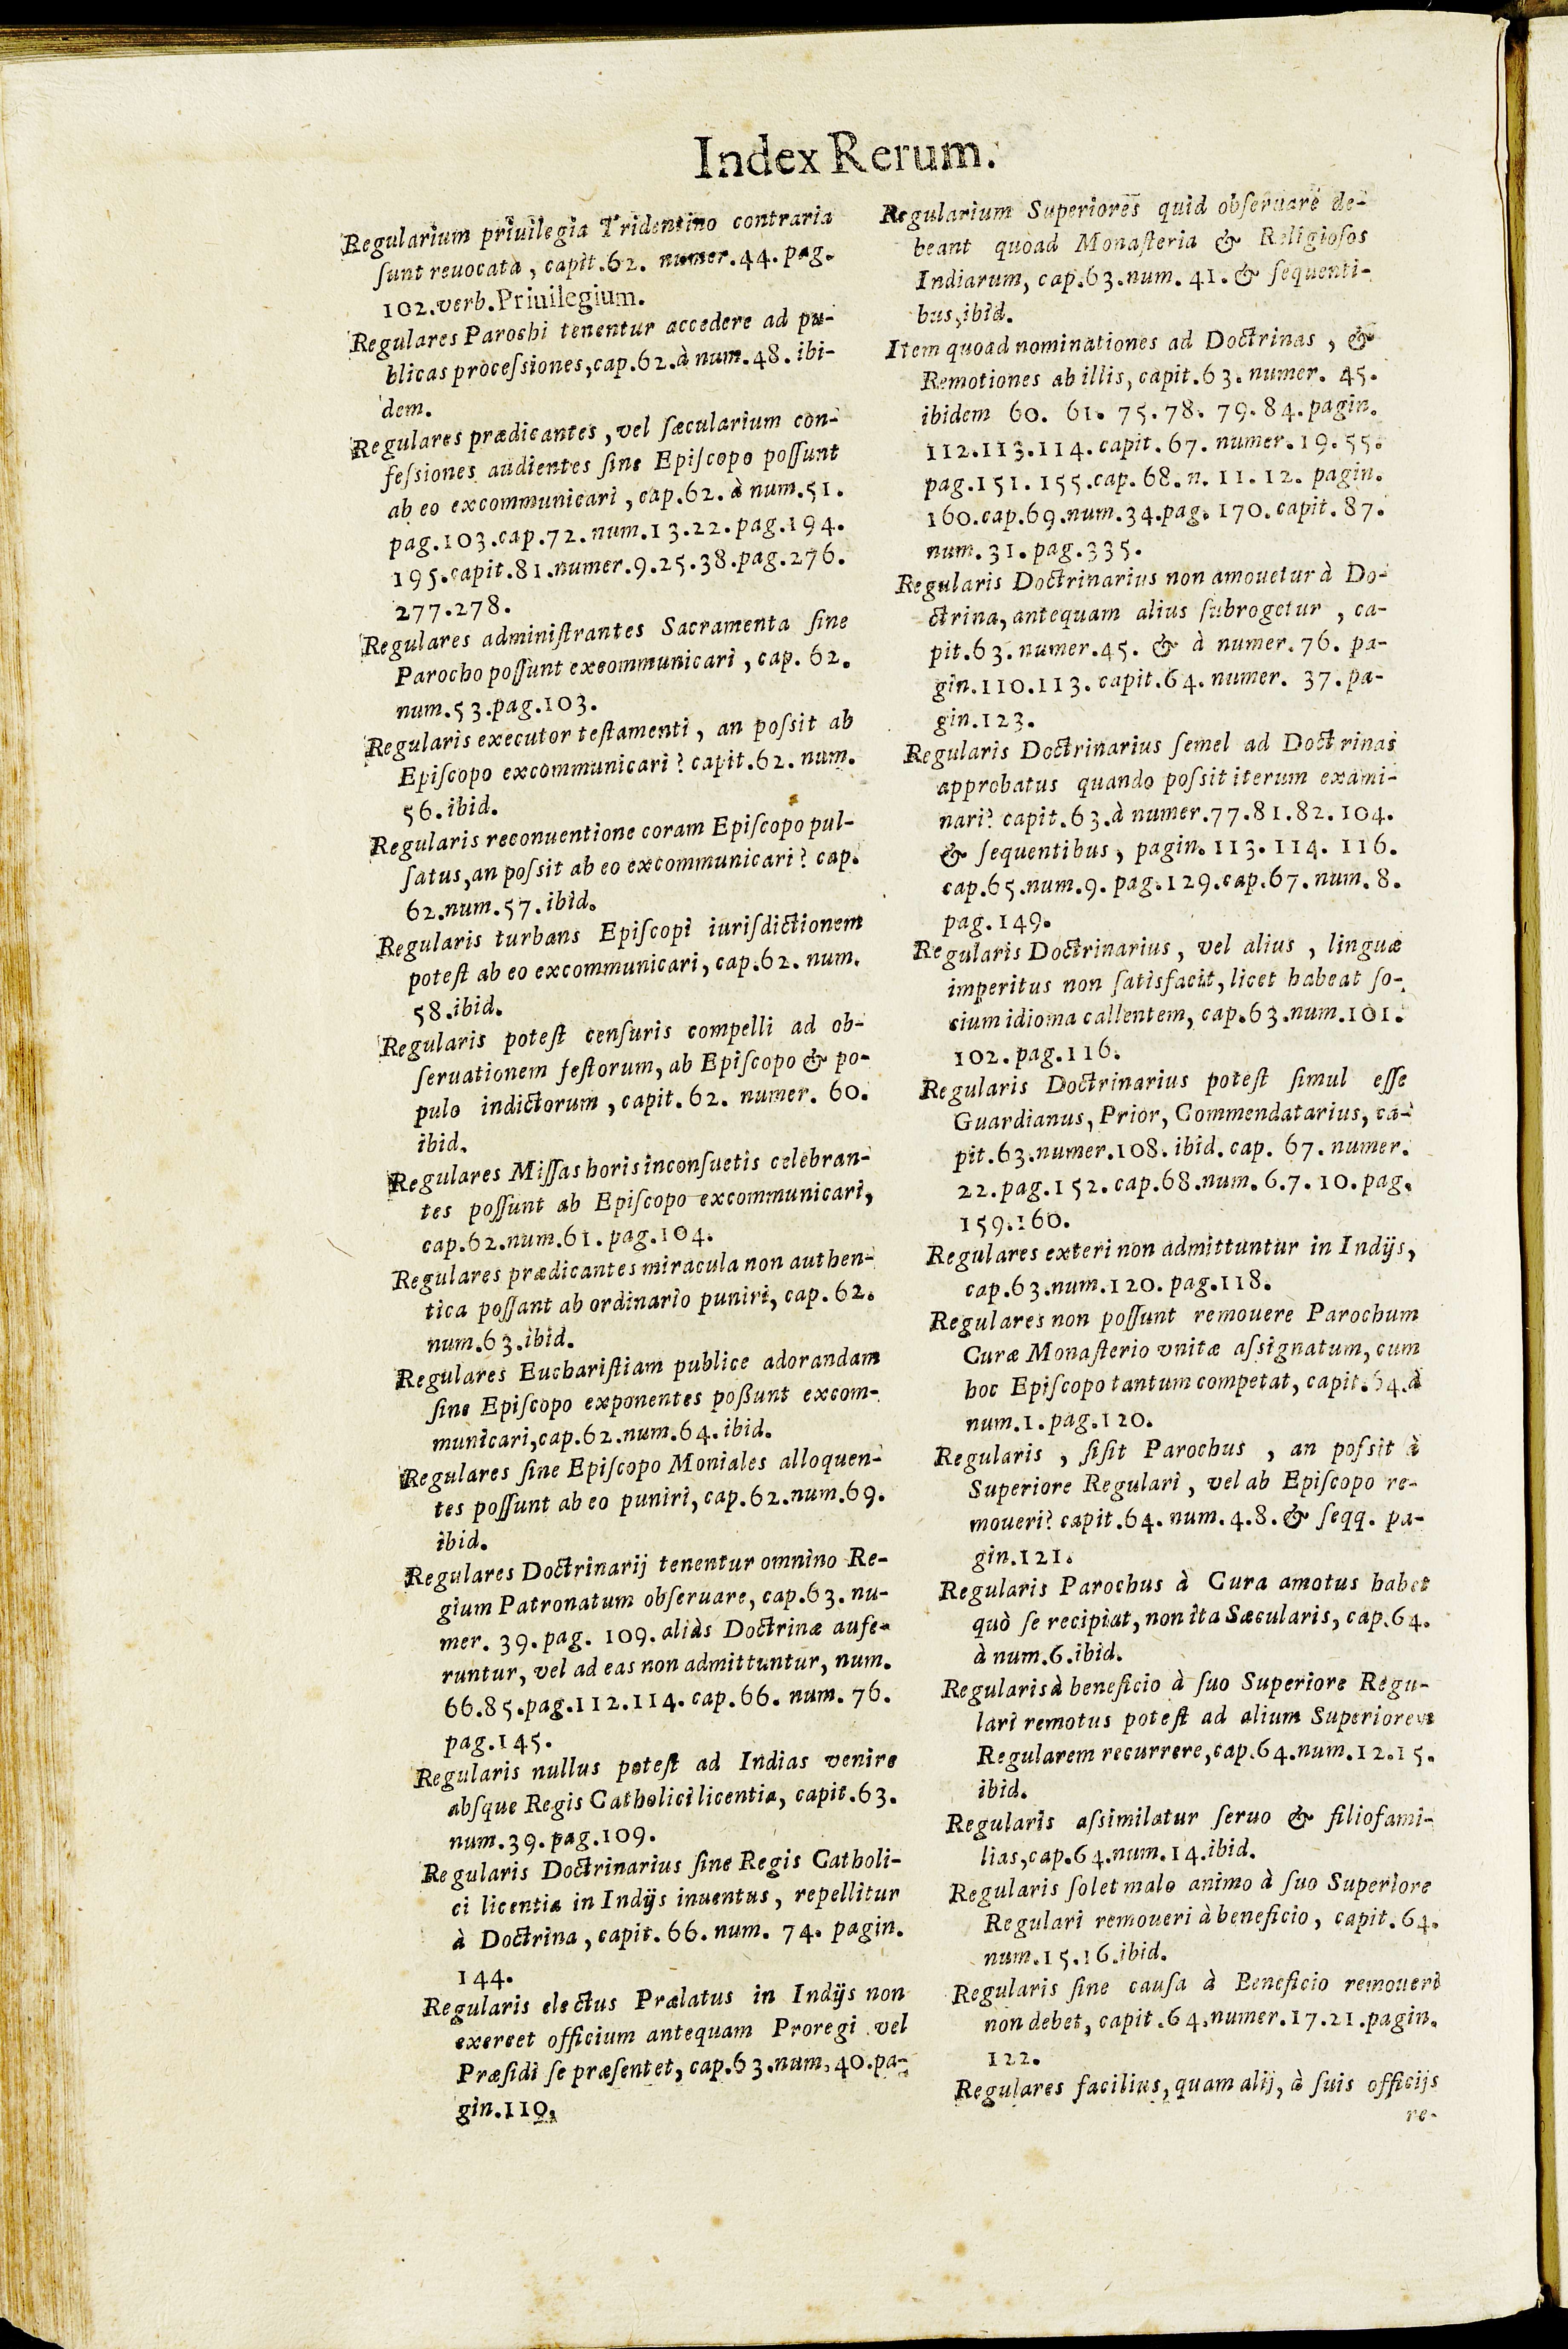 Index Rerum.
Regularium priuilegia Tridentino contraria
ſunt reuocata, capit.62. numer.44. pag.
102.verb.Priuilegium.
Regulares Parochi tenentur accedere ad pu-
blicas proceſsiones,cap.62.à num.48. ibi-
dem.
Regulares prædicantes, vel ſæcularium con-
feſsiones audientes ſine Epiſcopo poſſunt
ab eo excommunicari, cap.62. à num.51.
pag.103.cap.72.num.13.22.pag.194.
195.capit.81.numer.9.25.38.pag.276.
277.278.
Regulares adminiſtrantes Sacramenta ſine
Parocho poſſunt excommunicari, cap. 62.
num.53.pag.103.
Regularis executor teſtamenti, an poſsit ab
Epiſcopo excommunicari? capit.62. num.
56.ibid.
Regularis reconuentione coram Epiſcopo pul-
ſatus,an poſsit ab eo excommunicari? cap.
62.num.57.ibid.
Regularis turbans Epiſcopi iuriſdictionem
poteſt ab eo excommunicari, cap.62. num.
58.ibid.
Regularis poteſt cenſuris compelli ad ob-
ſeruationem feſtorum, ab Epiſcopo & po-
pulo indictorum, capit.62. numer. 60.
ibid.
Regulares Miſſas horis inconſuetis celebran-
tes poſſunt ab Epiſcopo excommunicari,
cap.62.num.61.pag.104.
Regulares prædicantes miracula non authen-
tica poſſant ab ordinario puniri, cap.62.
num.63.ibid.
Regulares Euchariſtiam publice adorandam
ſine Epiſcopo exponentes poßunt excom-
municari,cap.62.num.64.ibid.
Regulares ſine Epiſcopo Moniales alloquen-
tes poſſunt ab eo puniri, cap.62.num.69.
ibid.
Regulares Doctrinarij tenentur omnino Re-
gium Patronatum obſeruare, cap.63. nu-
mer. 39.pag. 109.aliàs Doctrinæ aufe-
runtur, vel ad eas non admittuntur, num.
66.85.pag.112.114.cap.66. num. 76.
pag.145.
Regularis nullus poteſt ad Indias venire
abſque Regis Catholici licentia, capit.63.
num.39.pag.109.
Regularis Doctrinarius ſine Regis Catholi-
ci licentia in Indijs inuentus, repellitur
à Doctrina, capit.66. num. 74. pagin.
144.
Regularis electus Prælatus in Indijs non
exercet officium antequam Proregi vel
Præſidi ſe præſentet, cap.63.num.40.pa-
gin.110.
Regularium Superiores quid obſeruare de-
beant quoad Monaſteria & Religioſos
Indiarum, cap.63.num. 41. & ſequenti-
bus,ibid.
Item quoad nominationes ad Doctrinas, &
Remotiones ab illis, capit.63. numer. 45.
ibidem 60. 61. 75. 78. 79. 84. pagin.
112.113.114. capit. 67. numer. 19. 55.
pag.151. 155.cap. 68. n. 11. 12. pagin.
160.cap.69.num.34.pag. 170. capit. 87.
num. 31. pag.335.
Regularis Doctrinarius non amouetur à Do-
ctrina, antequam alius ſubrogetur, ca-
pit.63. numer.45. & à numer. 76. pa-
gin.110.113. capit.64. numer. 37. pa-
gin.123.
Regularis Doctrinarius ſemel ad Doctrinas
approbatus quando poſsit iterum exami-
nari? capit.63.à numer.77.81.82. 104.
& ſequentibus, pagin. 113. 114. 116.
cap.65.num.9. pag.129.cap.67. num. 8.
pag.149.
Regularis Doctrinarius, vel alius, linguæ
imperitus non ſatisfacit, licet habeat ſo-
cium idioma callentem, cap.63.num.101.
102.pag.116.
Regularis Doctrinarius poteſt ſimul eſſe
Guardianus, Prior, Commendatarius, ca-
pit.63.numer.108. ibid. cap. 67. numer.
22.pag.152. cap.68.num. 6.7. 10. pag.
159.160.
Regulares exteri non admittuntur in Indijs,
cap.63.num.120. pag.118.
Regulares non poſſunt remouere Parochum
Curæ Monaſterio vnitæ aſsignatum, cum
hoc Epiſcopo tantum competat, capit.64.à
num.1.pag.120.
Regularis, ſi ſit Parochus, an poſsit à
Superiore Regulari, vel ab Epiſcopo re-
moueri? capit.64. num. 4.8. & ſeqq. pa-
gin.121.
Regularis Parochus à Cura amotus habet
quò ſe recipiat, non ita Sæcularis, cap.64.
à num.6.ibid.
Regularis à beneficio à ſuo Superiore Regu-
lari remotus poteſt ad alium Superiorem
Regularem recurrere, cap.64.num.12.15.
ibid.
Regularis aſsimilatur ſeruo & filiofami-
lias, cap.64.num.14.ibid.
Regularis ſolet malo animo à ſuo Superiore
Regulari remoueri à beneficio, capit.64.
num.15.16.ibid.
Regularis ſine cauſa à Beneficio remoueri
non debet, capit.64.numer.17.21.pagin.
122.
Regulares facilius, quam alij, à ſuis officijs
re-